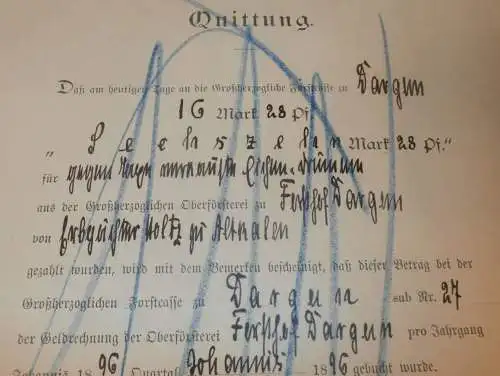 Quittung.
Daß am heutigen Tage an die Großherzogliche Forstcasse zu Dargun
16 Mark 28 Pf.
„Sechszehn Mark 28 Pf.“
für gegen
aus der Großherzoglichen Oberförsterei zu Forsthof Dargun
von Erbpächter Holtz zu Altkalen
gezahlt wurden, wird mit dem Bemerken bescheinigt, daß dieser Betrag bei der
Großherzoglichen Forstcasse zu Dargun sub Nr. 27
der Geldrechnung der Oberförsterei Forsthof Dargun pro Jahrgang
Johannis 1896 Quartal Johannis 1896 gebucht wurde.